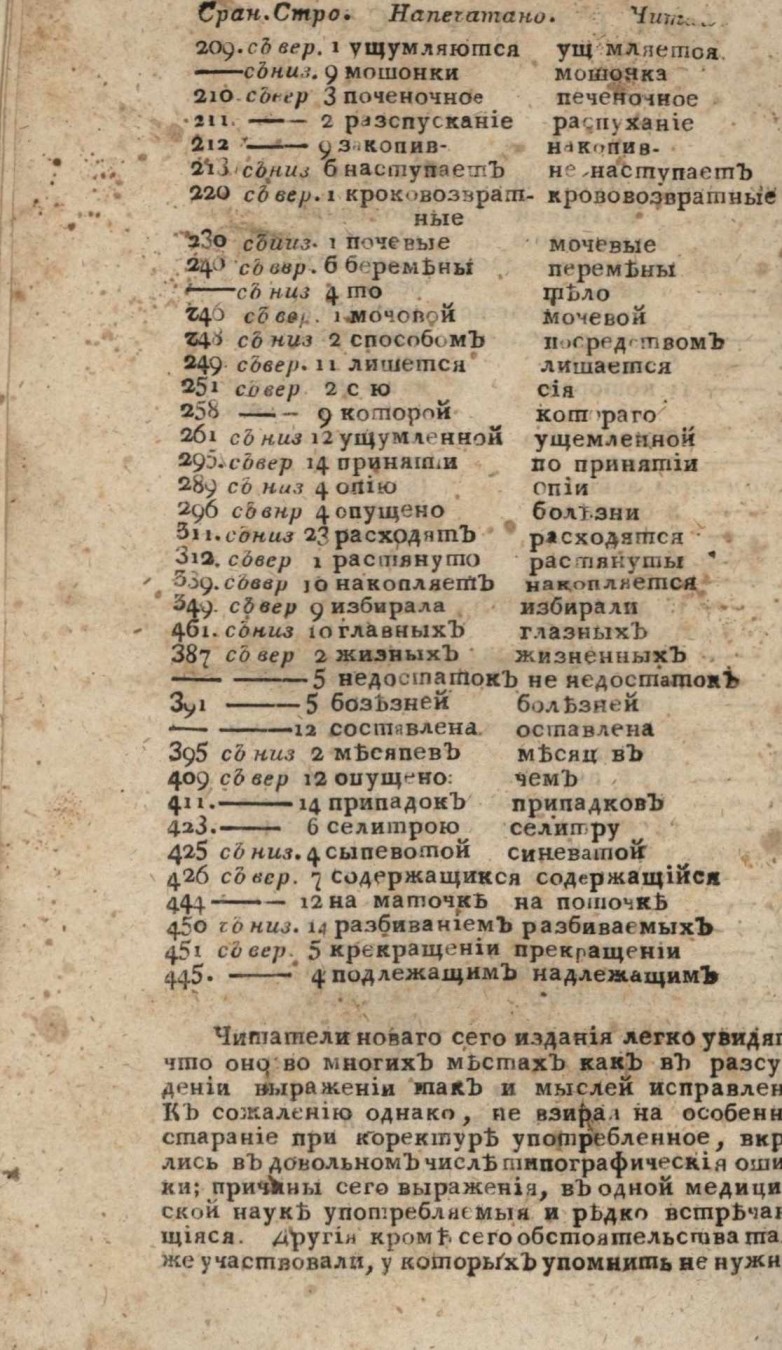 Сран. Стро. Напечатано.
209. съ вер. 1 ущумляются ущ мляется.
—— съ низ. 9 мошонки мошонка
210 съ вер 3 поченочное печеночное
211. —— 2 разспусканіе распуханіе
212 —— 9 закопив- накопив-
213 съ низ 6 наступаетъ не наступаетъ
220 съ вер. 1 кроковозврат- крововозвратные
ные
230 съ низ. 1 почевые мочевые
240 съ ввр. 6 беремѣны перемѣны
—— съ низ 4 то тѣло
246 съ вер. 1 мочовой мочевой
248 съ низ 2 способомъ посредствомъ
249 съ вер. 11 лишется лишается
251 со вер 2 с ю сія
258 —— 9 которой котораго
261 съ низ 12 ущумленной ущемленной
295. съ вер 14 приняти по принятіи
289 съ низ 4 опію опіи
296 съ внр 4 опущено болѣзни
311. сь низ 23 расходятъ расходятся
312. съ вер 1 растянуто растянуты
339. съ ввр 10 накопляетъ накопляется
349. съ вер 9 избирала избирали
461. съ низ 10 главныхъ глазныхъ
387 съ вер 2 жизныхъ жизненныхъ
—— —— 5 недостатокъ не недостатокъ
391 —— 5 бозѣзней болѣзней
—— —— 12 составлена. оставлена
395 съ низ 2 мѣсяпевъ мѣсяц въ
409 съ вер 12 опущено: чемъ
411. —— 14 припадокъ припадковъ
423. —— 6 селитрою селитру
425 съ низ. 4 сыпевотой синеватой
426 съ вер. 7 содержащикся содержащійся
444 —— 12 на маточкѣ на поточкѣ
450 съ низ. 14 разбиваніемъ разбиваемыхъ
451 съ вер. 5 крекращеніи прекращеніи
445. —— 4 подлежащимъ надлежащимъ
Читатели новаго сего изданія легко увидят
что оно во многихъ мѣстахъ какъ въ разсу
деніи выраженіи такъ и мыслей исправлен
Къ сожаленію однако, не взирая на особенн
стараніе при коректурѣ употребленное, вкр
лись въ довольномъ числѣ типографическія оши
ки; причины сего выраженія, въ одной медици
ской наукѣ употребляемыя и рѣдко встрѣчаю
щіяся. Другія кромѣ сего обстоятельства та
же участвовали, у которыхъ упомнить не нужн